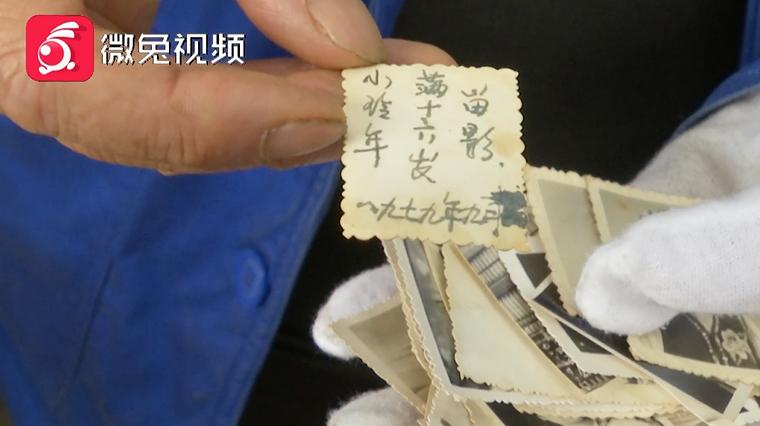 微兔视频
小玲年
满十六岁
留影.
一九七九年九月